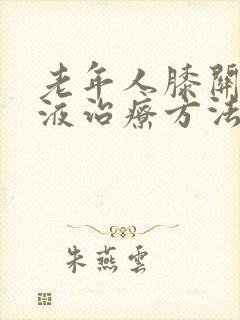 老年人膝關
液治療方法
朱燕雲